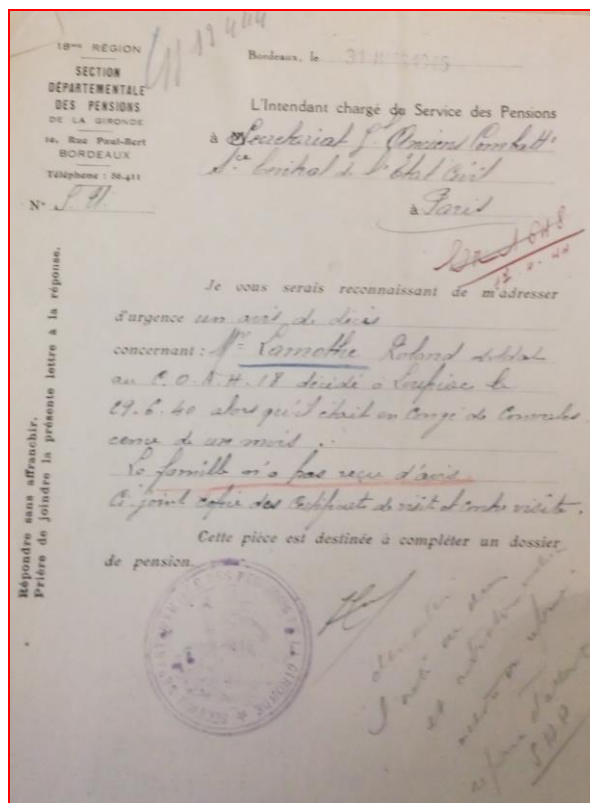 18me RÉGION
SECTION
DÉPARTEMENTALE
DES PENSIONS
DE LA GIRONDE
10, Rue Paul-Bert
BORDEAUX
Téléphone : 86.411
N° S.U.
Bordeaux, le 31
L'Intendant chargé du Service des Pensions
à Secretariat Gal Anciens Combatts
Sce Central de l'État Civil
à Paris
Je vous serais reconnaissant de m'adresser
d'urgence un avis de décès
concernant : Mr Lamothe Roland soldat
au C.O.A. H. 18 décédé à Loupiac le
29.6.40 alors qu'il était en Congé de Convales
cence de un mois.
La famille n'a pas reçu d'avis
Ci-joint copie des Certificats de visite et contre visite.
Cette pièce est destinée à compléter un dossier
de pension.
Répondre sans affranchir.
Prière de joindre la présente lettre à la réponse.
DES PENSIONS DE LA GIRONDE